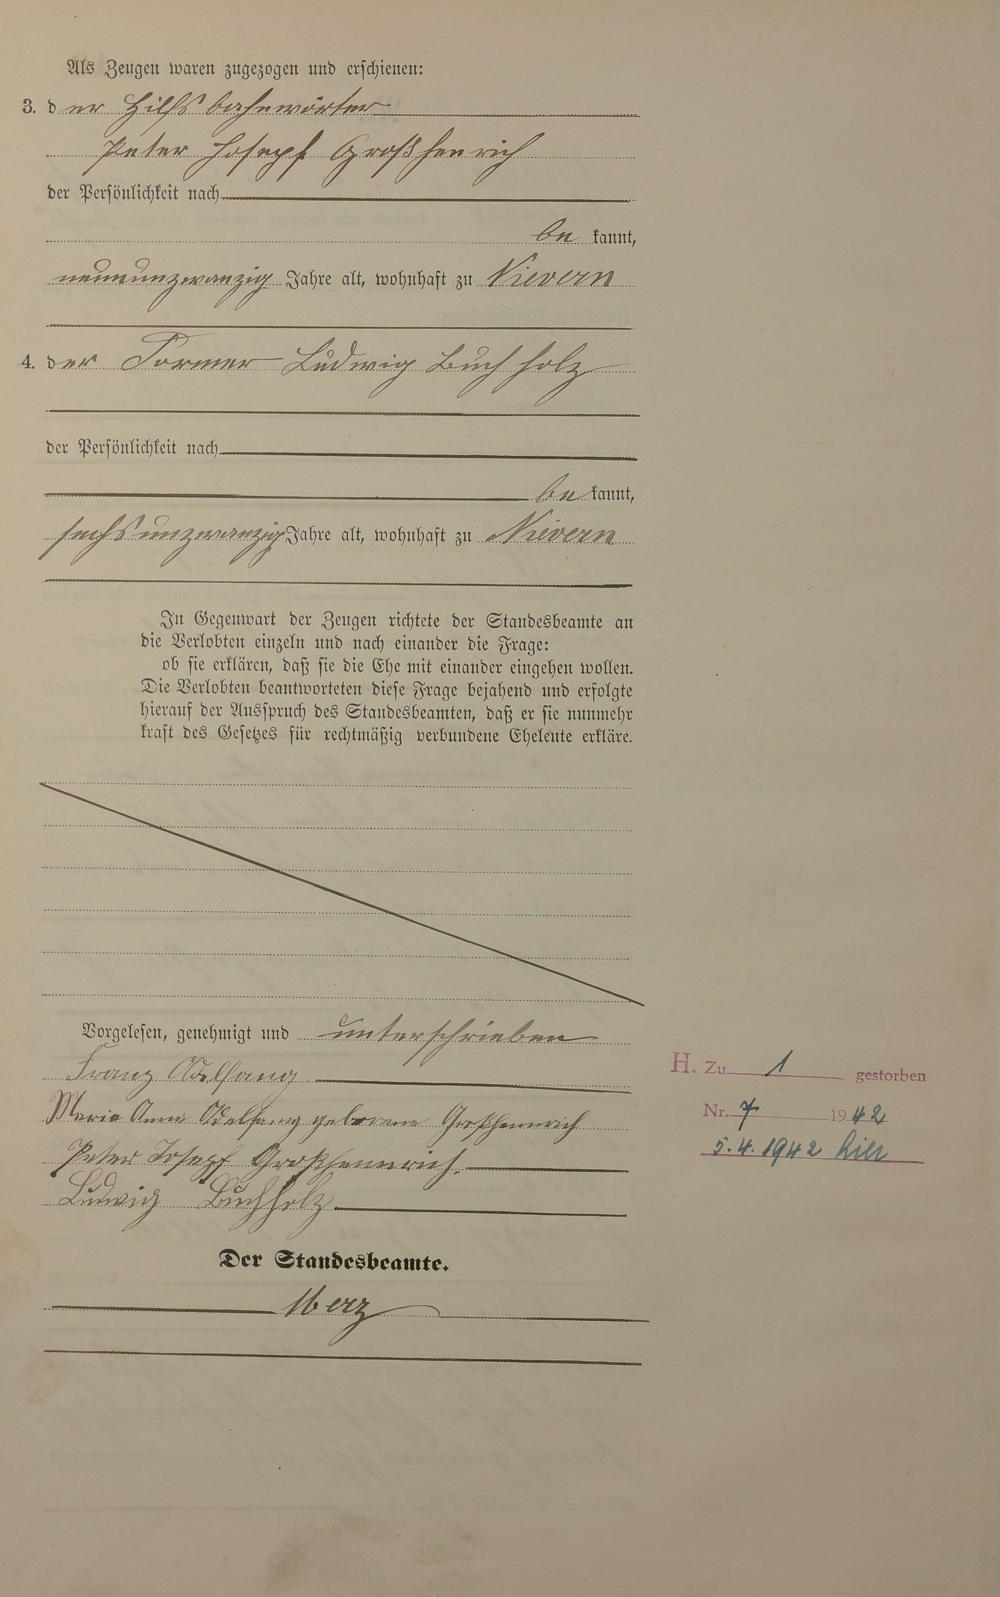 Als Zeugen waren zugezogen und erschienen:
3. der Hilfsbahnwärter
Peter Josepf Großhenrich
der Persönlichkeit nach
be kannt,
neununzwanzig Jahre alt, wohnhaft zu Nievern
4. der Former Ludwig Buchholz
der Persönlichkeit nach
be kannt,
sechsunzwanzig Jahre alt, wohnhaft zu Nievern
In Gegenwart der Zeugen richtete der Standesbeamte an
die Verlobten einzeln und nach einander die Frage:
ob sie erklären, daß sie die Ehe mit einander eingehen wollen.
Die Verlobten beantworteten diese Frage bejahend und erfolgte
hierauf der Ausspruch des Standesbeamten, daß er sie nunmehr
kraft des Gesetzes für rechtmäßig verbundene Eheleute erkläre.
Vorgelesen, genehmigt und unterschrieben
Franz Adelfang
Maria Anna Adelfang geborene Großhennrich
Peter Josepf Großhennrich.
Ludwig Buchholz
Der Standesbeamte.
Merz
H. Zu 1 gestorben
Nr. 7 1942
5.4.1942 hier